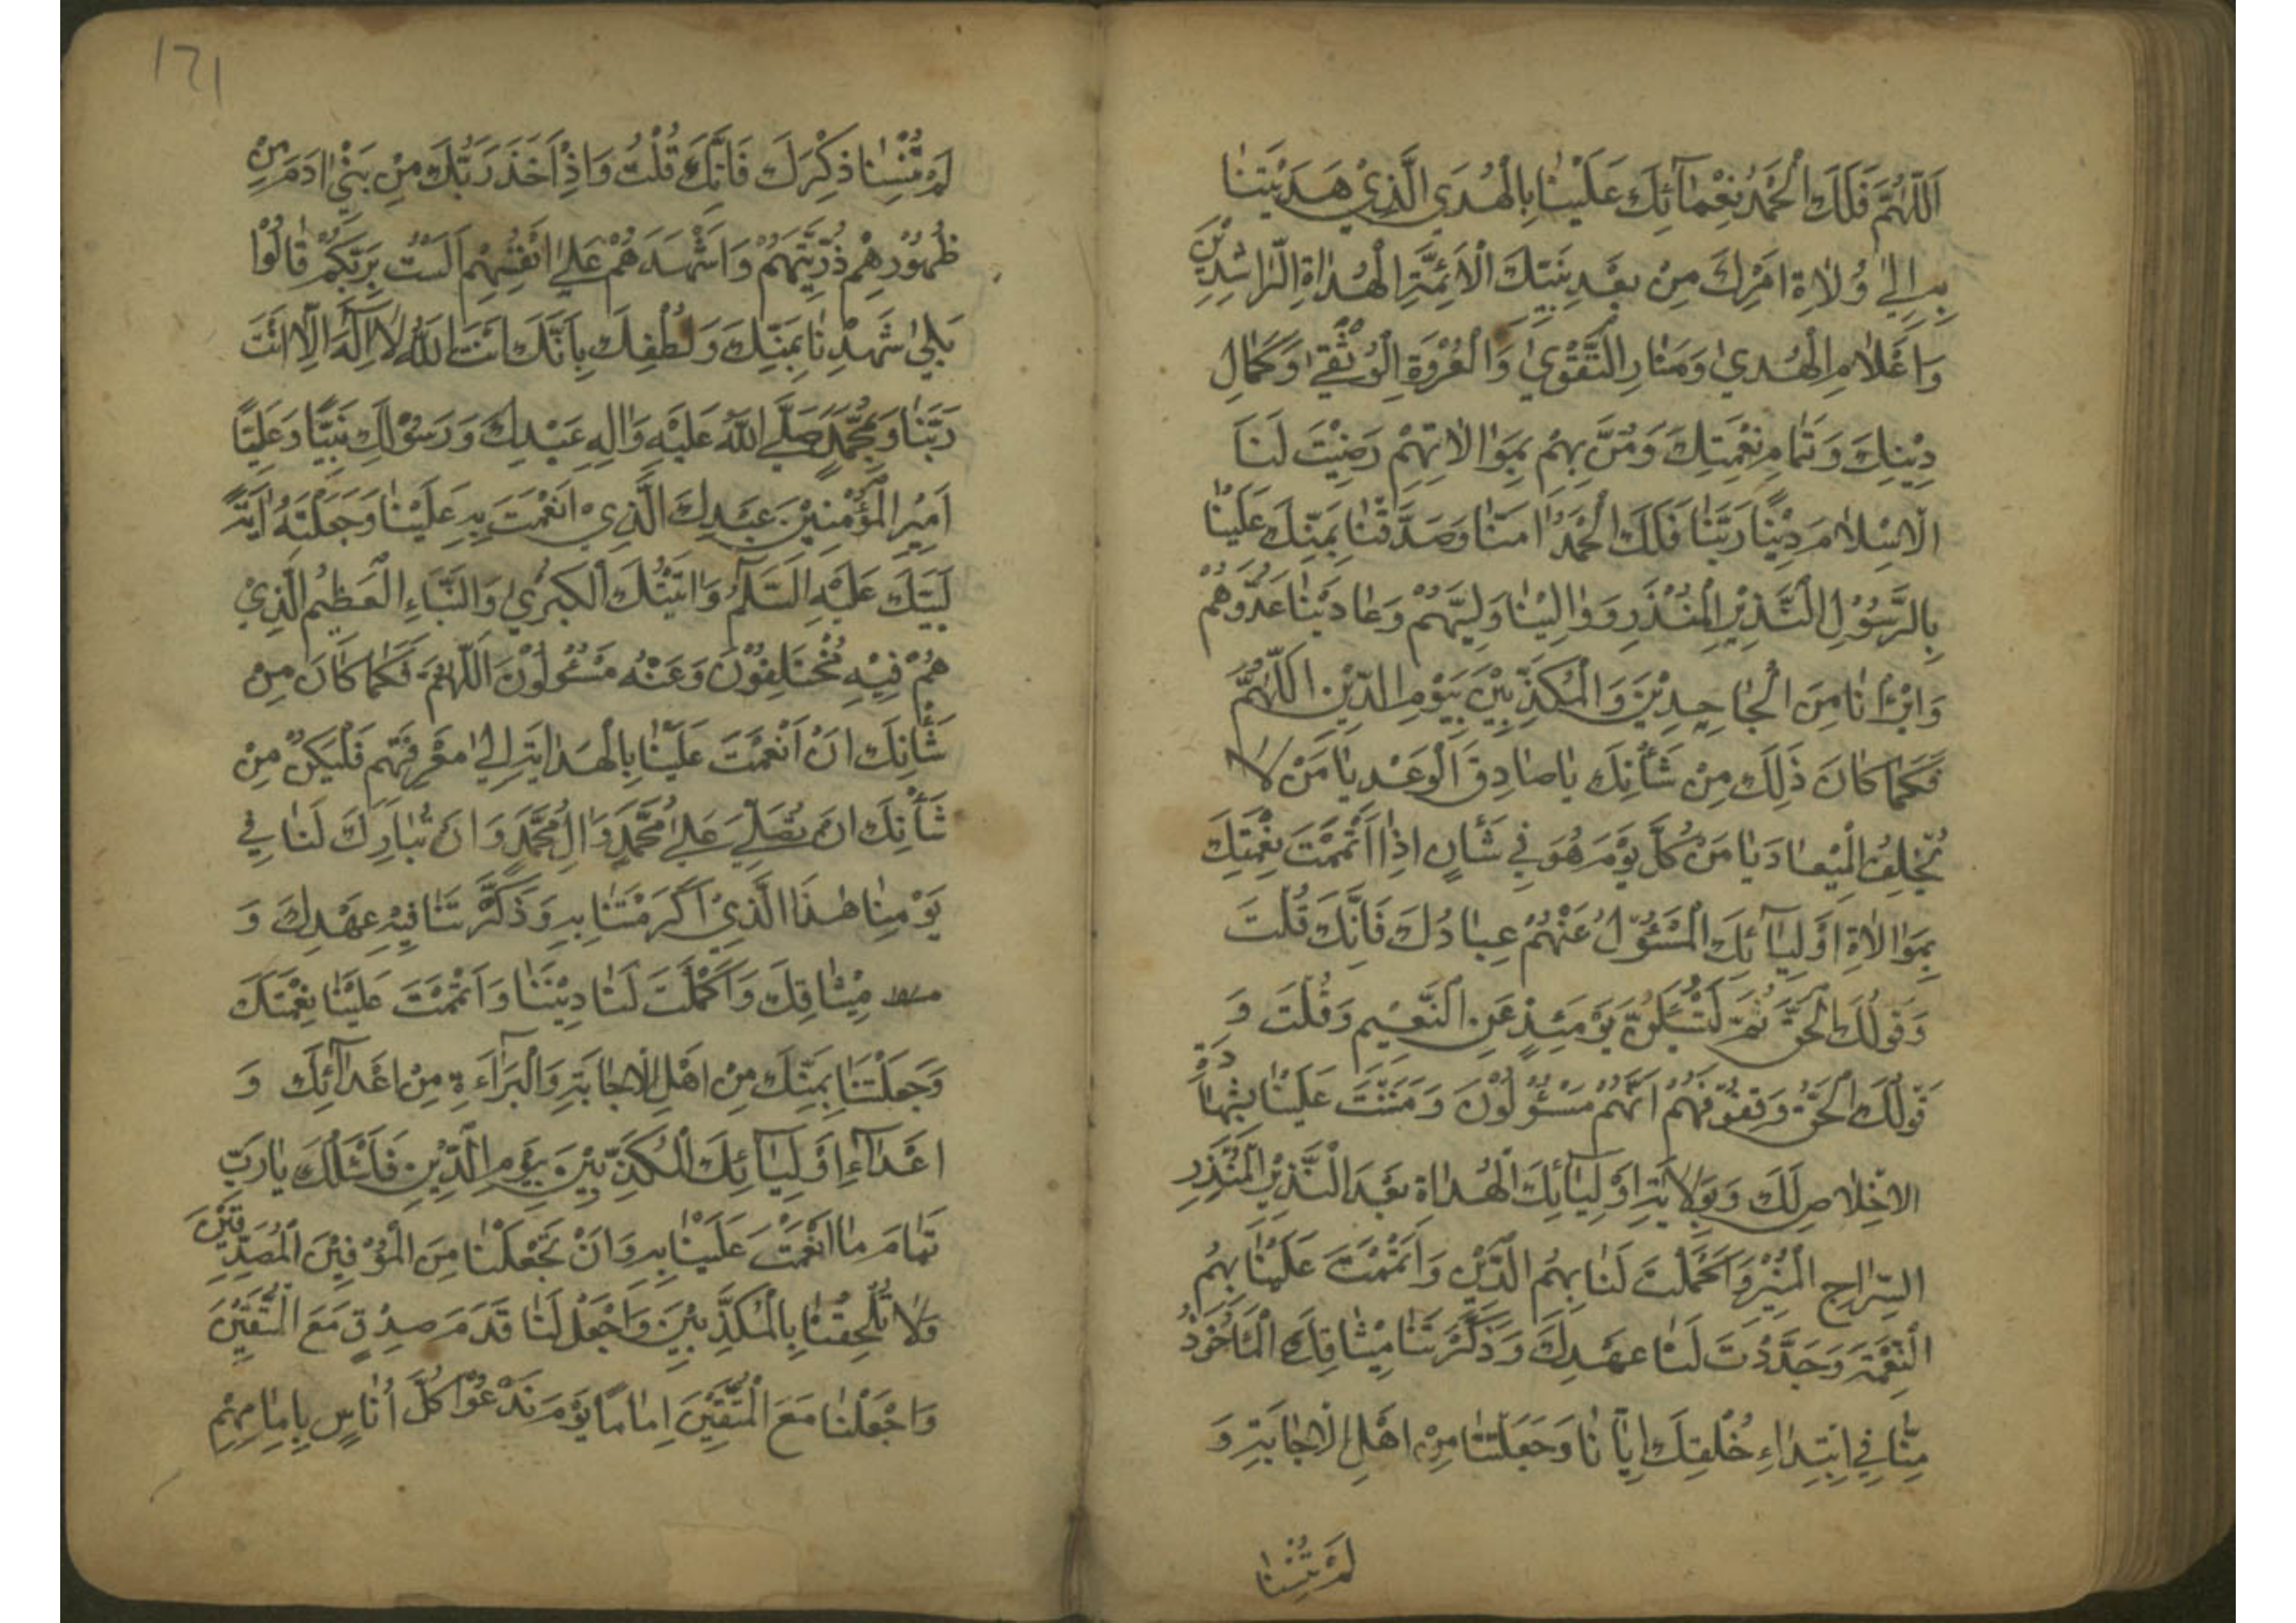 اَللّٰهُمَّ فَلَكَ الْحَمْدُ نِعْمَائِكَ عَلَيْنَا بِالْهُدَى الَّذِيْ هَدَيْتَنَا
بِهِ اِلٰى وُلَاةِ اَمْرِكَ مِنْ بَعْدِ نَبِيِّكَ الْاَئِمَّةِ الْهُدَاةِ الرَّاشِدِيْنَ
وَاَعْلَامِ الْهُدٰى وَمَنَارِ التَّقْوٰى وَالْعُرْوَةِ الْوُثْقٰى وَكَمَالِ
دِيْنِكَ وَتَمَامِ نِعْمَتِكَ وَمَنْ بِهِمْ بِمَوَالَاتِهِمْ رَضِيْتَ لَنَا
الْاِسْلَامَ دِيْنًا رَبَّنَا فَلَكَ الْحَمْدُ اٰمَنَّا وَصَدَّقْنَا بِمَنِّكَ عَلَيْنَا
بِالرَّسُوْلِ النَّذِيْرِ الْمُنْذِرِ وَوَالَيْنَا وَلِيَّهُمْ وَعَادَيْنَا عَدُوَّهُمْ
وَابْرَانَا مِنَ الْجَاحِدِيْنَ وَالْمُكَذِّبِيْنَ بِيَوْمِ الدِّيْنِ اَللّٰهُمَّ
فَكَمَا كَانَ ذٰلِكَ مِنْ شَأْنِكَ يَا صَادِقَ الْوَعْدِ يَا مَنْ لَا
تُخْلِفُ الْمِيْعَادَ يَا مَنْ كُلَّ يَوْمٍ هُوَ فِيْ شَأْنٍ اِذَا اَتْمَمْتَ نِعْمَتِكَ
بِمَوَالَاةِ اَوْلِيَائِكَ الْمَسْئُوْلُ عَنْهُمْ عِبَادُكَ فَاِنَّكَ قُلْتَ
وَقَوْلُكَ الْحَقُّ ثُمَّ لَتُسْئَلُنَّ يَوْمَئِذٍ عَنِ النَّعِيْمِ وَقُلْتَ وَ
قَوْلُكَ الْحَقُّ وَقِفُوْهُمْ اِنَّهُمْ مَسْئُوْلُوْنَ وَمَنَنْتَ عَلَيْنَا بِشَهَادَةِ
الْاِخْلَاصِ لَكَ وَبِوَلَايَةِ اَوْلِيَائِكَ الْهُدَاةِ بَعْدَ النَّذِيْرِ الْمُنْذِرِ
السِّرَاجِ الْمُنِيْرِ وَاَكْمَلْتَ لَنَا بِهِمُ الدِّيْنَ وَاَتْمَمْتَ عَلَيْنَا بِهِمُ
النِّعْمَةَ وَجَدَّدْتَ لَنَا عَهْدِكَ وَذَكَّرْتَنَا مِيْثَاقِكَ الْمَأْخُوْذُ
مِنَّا فِيْ ابْتِدَاءِ خَلْقِكَ اِيَّانَا وَجَعَلْتَنَا مِنْ اَهْلِ الْاِجَابَةِ وَ
لَمْ تُنْسِنَا
١٦١
لَمْ تُنْسِنَا ذِكْرَكَ فَاِنَّكَ قُلْتَ وَاِذْ اَخَذَ رَبُّكَ مِنْ بَنِيْ اٰدَمَ مِنْ
ظُهُوْرِهِمْ ذُرِّيَّتَهُمْ وَاَشْهَدَهُمْ عَلٰى اَنْفُسِهِمْ اَلَسْتُ بِرَبِّكُمْ قَالُوْا
بَلٰى شَهِدْنَا بِمَنِّكَ وَلُطْفِكَ بِاَنَّكَ اَنْتَ اللّٰهُ لَا اِلٰهَ اِلَّا اَنْتَ
رَبَّنَا وَمُحَمَّدٍ صَلَّى اللّٰهُ عَلَيْهِ وَاٰلِهِ عَبْدِكَ وَرَسُوْلِكَ نَبِيًّا وَعَلِيًّا
اَمِيْرَ الْمُؤْمِنِيْنَ عَبْدِكَ الَّذِيْ اَنْعَمْتَ بِهِ عَلَيْنَا وَجَعَلْتَهُ اٰيَةً
لِنَبِيِّكَ عَلَيْهِ السَّلَامُ وَاٰيَتُكَ الْكُبْرٰى وَالنَّبَاءِ الْعَظِيْمِ الَّذِيْ
هُمْ فِيْهِ مُخْتَلِفُوْنَ وَعَنْهُ مَسْئُوْلُوْنَ اَللّٰهُمَّ فَكَمَا كَانَ مِنْ
شَأْنِكَ اَنْ اَنْعَمْتَ عَلَيْنَا بِالْهِدَايَةِ اِلٰى مَعْرِفَتِهِمْ فَلْيَكُنْ مِنْ
شَأْنِكَ اَنْ تُصَلِّيَ عَلٰى مُحَمَّدٍ وَاٰلِ مُحَمَّدٍ وَاَنْ تُبَارِكَ لَنَا فِيْ
يَوْمِنَا هٰذَا الَّذِيْ اَكْرَمْتَنَا بِهِ وَذَكَّرْتَنَا فِيْهِ عَهْدِكَ وَ
مِيْثَاقِكَ وَاَكْمَلْتَ لَنَا دِيْنَنَا وَاَتْمَمْتَ عَلَيْنَا نِعْمَتَكَ
وَجَعَلْتَنَا بِمَنِّكَ مِنْ اَهْلِ الْاِجَابَةِ وَالْبَرَاءَةِ مِنْ اَعْدَائِكَ وَ
اَعْدَاءِ اَوْلِيَائِكَ الْمُكَذِّبِيْنَ بِيَوْمِ الدِّيْنِ فَاَسْئَلُكَ يَا رَبِّ
تَمَامَ مَا اَنْعَمْتَ عَلَيْنَا بِهِ وَاَنْ تَجْعَلَنَا مِنَ الْمُوْفِيْنَ الْمُصَدِّقِيْنَ
وَلَا تُلْحِقْنَا بِالْمُكَذِّبِيْنَ وَاجْعَلْ لَنَا قَدَمَ صِدْقٍ مَعَ الْمُتَّقِيْنَ
وَاجْعَلْنَا مَعَ الْمُتَّقِيْنَ اِمَامًا يَوْمَ نَدْعُوْا كُلَّ اُنَاسٍ بِاِمَامِهِمْ